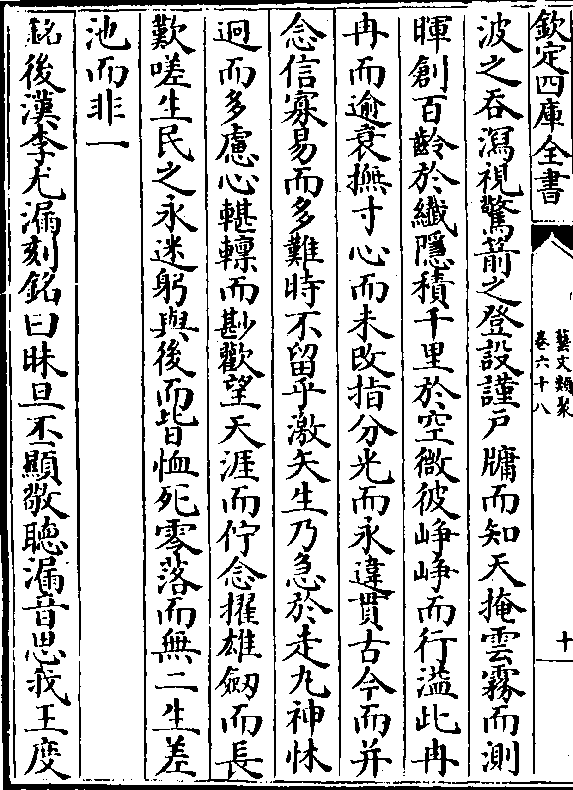 欽定四庫全書
藝文類聚
卷六十八
十
波之吞瀉視驚箭之登設謹戶牖而知天掩雲霧而測
暉創百齡於纖隱積千里於空微彼崢崢而行溢此冉
冉而逾衰撫寸心而未改指分光而永違貫古今而并
念信寡易而多難時不留乎激矢生乃急於走丸神怵
迥而多慮心轗轗而尠歡望天涯而佇念擢雄劒而長
歎嗟生民之永迷躬與後而皆恤死零落而無二生差
池而非一
銘後漢李尤漏刻銘曰昧旦丕顯敬聴漏音思我王度